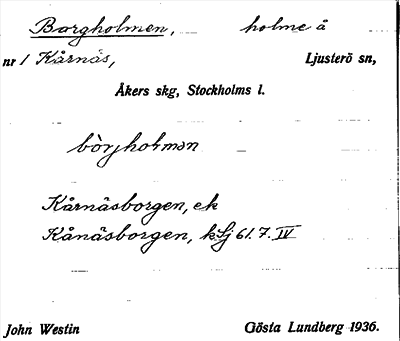 Borgholmen, holme å
nr 1 Kårnäs, Ljusterö sn,
Åkers skg, Stockholms l.
bòrjholmən
Kårnäsborgen, ek
Kånäsborgen, kSj 61.7. IV
John Westin Gösta Lundberg 1936.